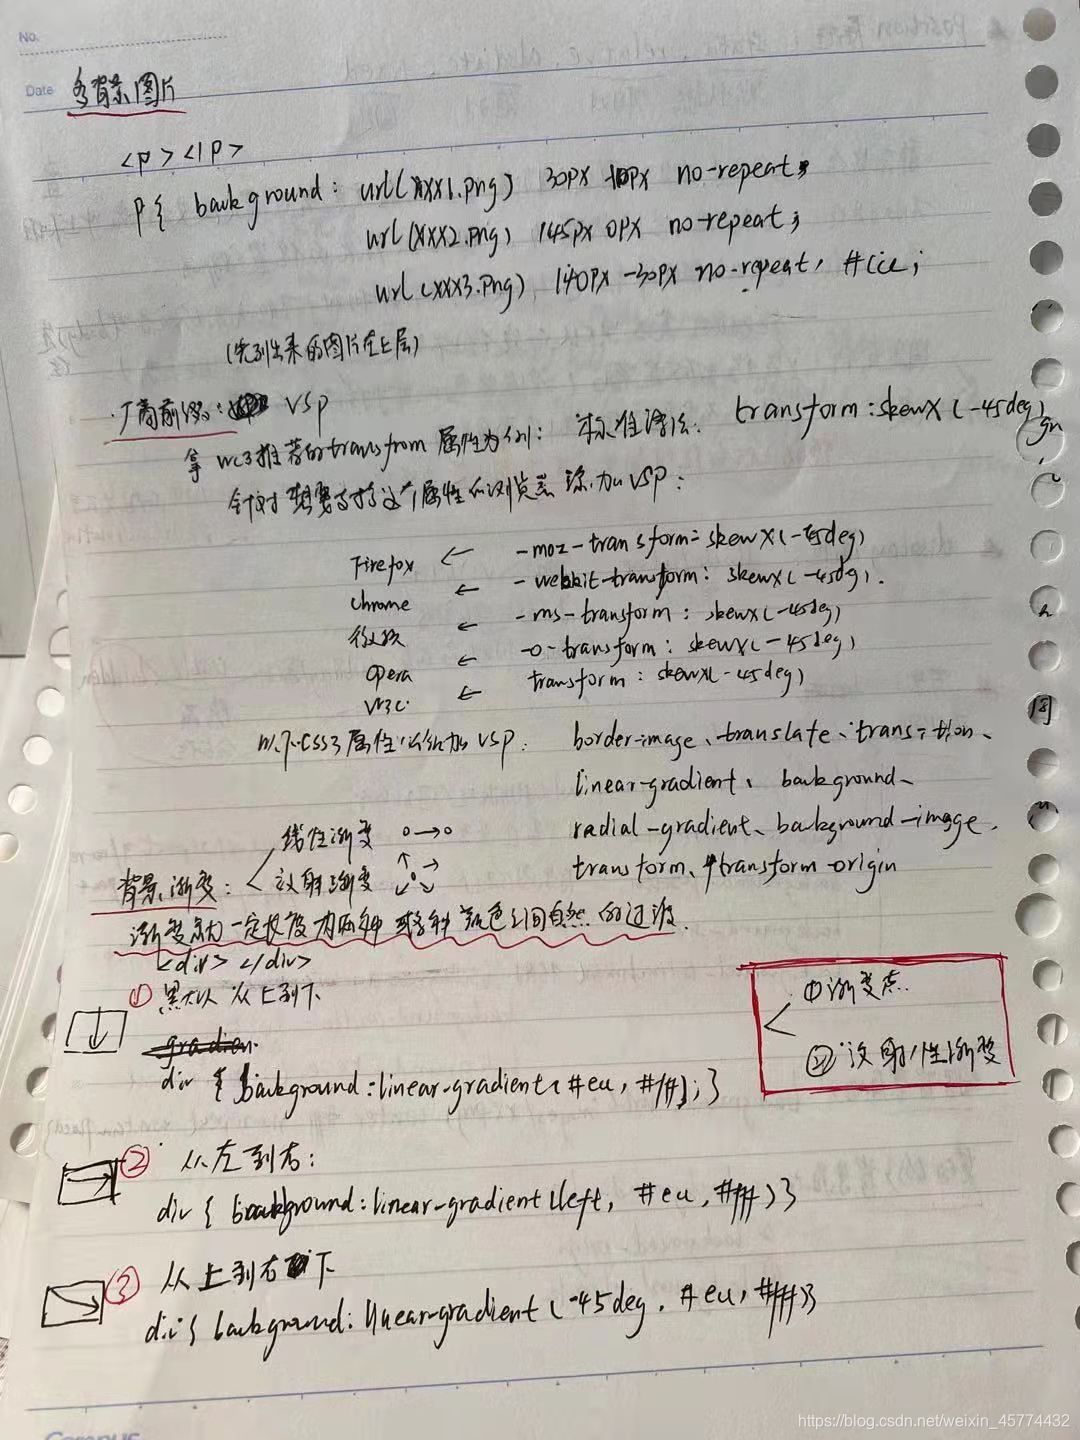 No.
Date
多背景图片
<p></p>
p{ background: url(xxx1.png) 30px 10px no-repeat,
url(xxx2.png) 145px 0px no-repeat,
url(xxx3.png) 140px -30px no-repeat, #cce;
(先列出来的图片在上层)
·厂商前缀: VSP
拿 WC3推荐的transfrom 属性为例: 标准语法: transform:skewX(-45deg)
针对想要支持这个属性的浏览器添加VSP:
Firefox ← -moz-transform: skewX(-45deg)
chrome ← -webkit-transform: skewX(-45dg).
微软 ← -ms-transform: skewX(-45deg)
opera ← -o-transform: skewX(-45deg)
W3C. ← transform: skewX(-45deg)
以下CSS3属性必须加VSP: border-image、translate、transition、
linear-gradient、background、
radial-gradient、background-image,
transform、transform-origin
线性渐变
背景渐变: < 放射渐变
渐变就为一定长度内两种或多种颜色之间自然的过渡.
<div> </div>
① 默认从上到下
div { background:linear-gradient(#eu, #fff);}
① 渐变点
② 放射性渐变
② 从左到右:
div { background:linear-gradient(left, #eu, #fff)}
③ 从上到右下
div{ background: linear-gradient(-45deg, #eu, #fff)}
Campus
https://blog.csdn.net/weixin_45774432